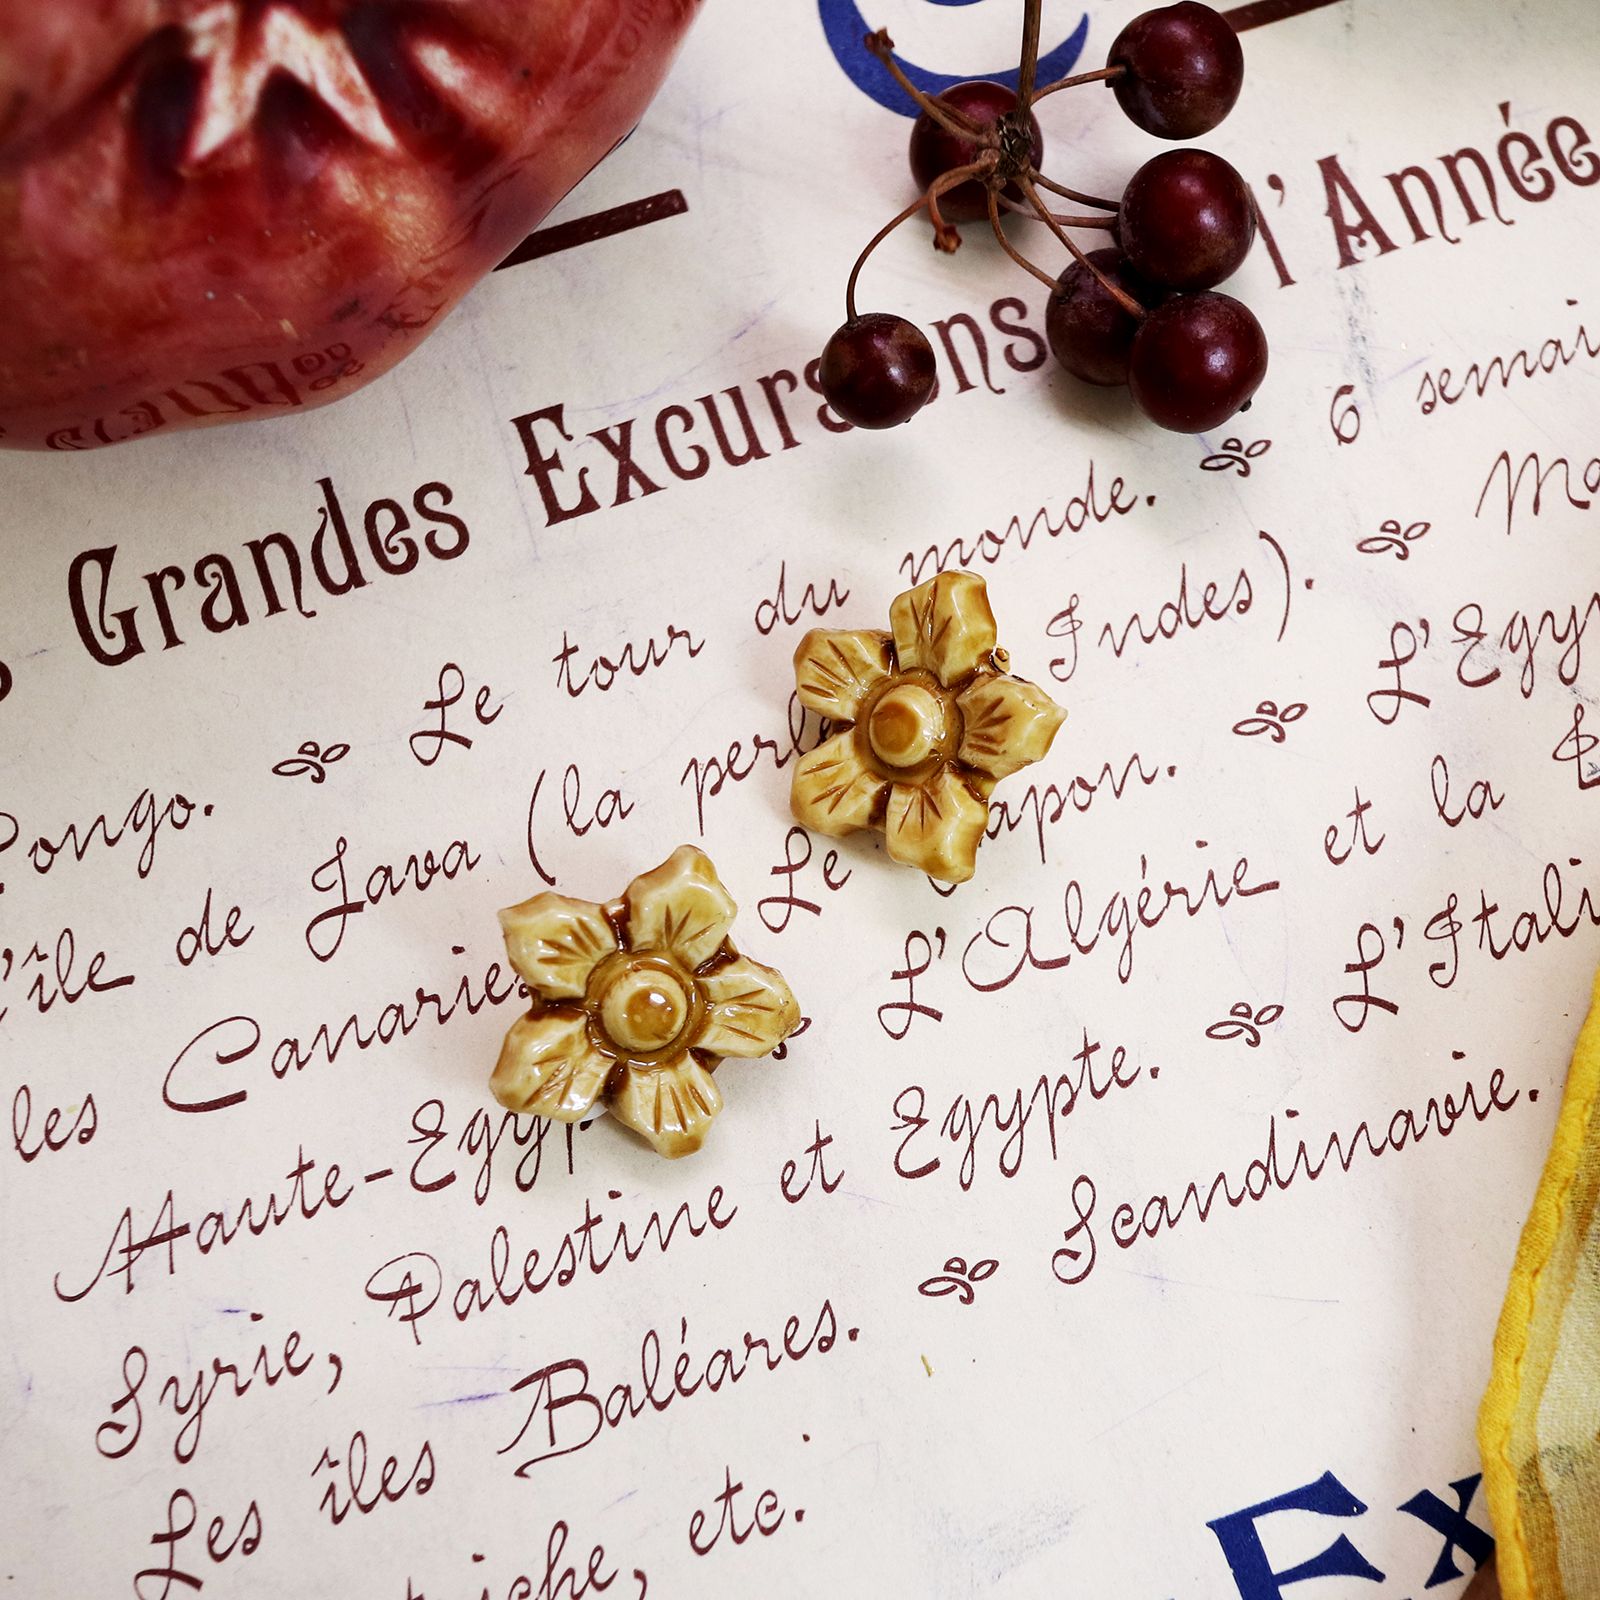 Grandes Excursions l'Année
Congo. Le tour du monde. 6
l'île de Java (la perle Indes).
les Canaries. Le Japon. L'Egyp
Haute-Egyp L'Algérie et la
Syrie, Palestine et Egypte. L'Itali
Les îles Baléares. Scandinavie.
etc.
Ex